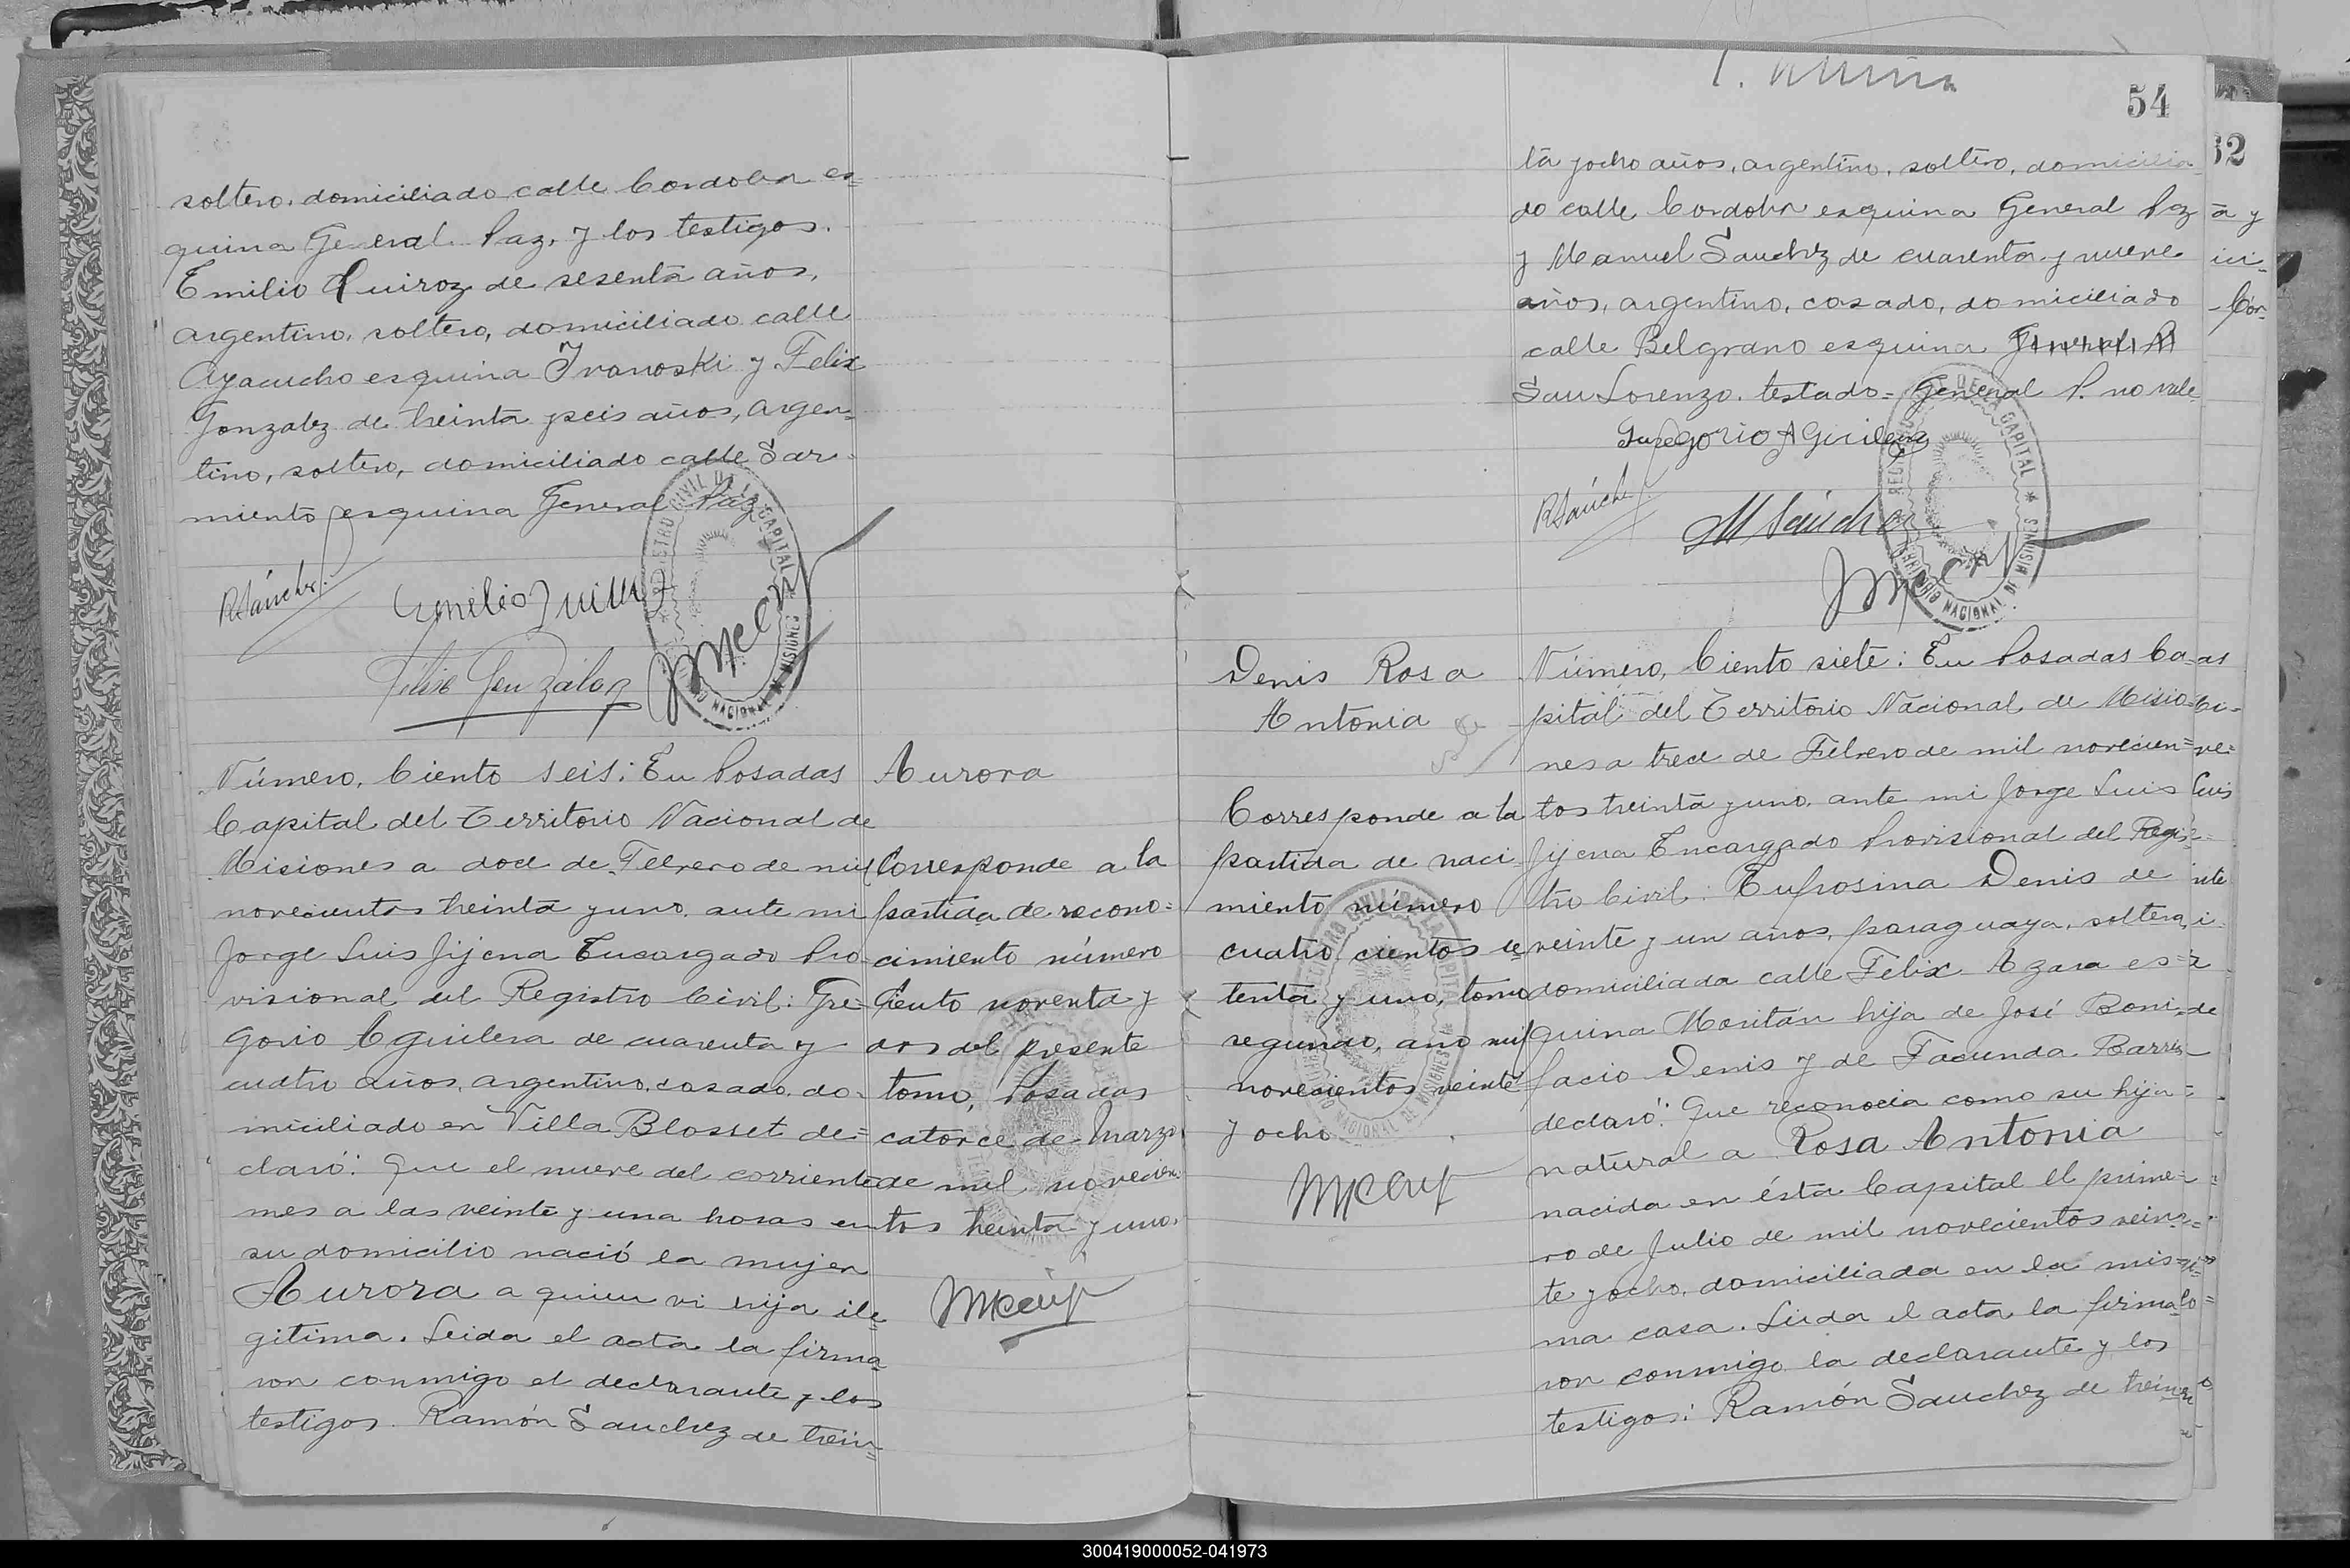 soltero, domiciliado calle Cordoba es=
quina General Paz, y los testigos.
Emilio Quiroz de sesenta años,
argentino, soltero, domiciliado calle
Ayacucho esquina Ivanoski y Felix
Gonzalez de treinta y seis años, argen=
tino, soltero, domiciliado calle Sar-
miento esquina General Paz
REGISTRO CIVIL DE LA CAPITAL * TERRITORIO NACIONAL DE MISIONES *
RSánchez
Emilio Quiroz
Felix Gonzalez
Número, Ciento seis: En Posadas
Capital del Territorio Nacional de
Misiones a doce de Febrero de mil
novecientos treinta y uno, ante mi
Jorge Luis Jijena Encargado Pro-
visional del Registro Civil: Gre=
gorio Aguilera de cuarenta y
cuatro años, argentino, casado, do-
miciliado en Villa Blosset de=
claró: Que el nueve del corriente
mes a las veinte y una horas en
su domicilio nació la mujer
Aurora a quien vi hija ile=
gitima. Leida el acta la firma=
ron conmigo el declarante y los
testigos. Ramón Sanchez de trein=
Aurora
Corresponde a la
partida de recono=
cimiento número
Ciento noventa y
dos del presente
tomo, Posadas
catorce de Marzo
de mil novecien-
tos treinta y uno.
54
ta y ocho años, argentino, soltero, domicilia-
do calle Cordoba esquina General Paz
y Manuel Sanchez de cuarenta y nueve
años, argentino, casado, domiciliado
calle Belgrano esquina General P
San Lorenzo. testado= General P. no vale
Gregorio Aguilera
RSánchez
M Sánchez
REGISTRO CIVIL DE LA CAPITAL * TERRITORIO NACIONAL DE MISIONES *
Denis Rosa
Antonia
Corresponde a la
partida de naci-
miento número
cuatro cientos se
tenta y uno, tomo
segundo, año mil
novecientos veinte
y ocho
Número, Ciento siete: En Posadas Ca-
pital del Territorio Nacional de Misio-
nes a trece de Febrero de mil novecien=
tos treinta y uno, ante mi Jorge Luis
Jijena Encargado Provisional del Regis-
tro Civil: Eufrosina Denis de
veinte y un años, paraguaya, soltera,
domiciliada calle Felix Azara es=
quina Moritán hija de José Boni-
facio Denis y de Facunda Barrios
declaró: Que reconocia como su hija
natural a Rosa Antonia
nacida en ésta Capital el prime-
ro de Julio de mil novecientos vein=
te y ocho, domiciliada en la mis-
ma casa. Leida el acta la firma
ron conmigo la declarante y los
testigos: Ramón Sanchez de trein
62
a y
ici-
Cor=
300419000052-041973